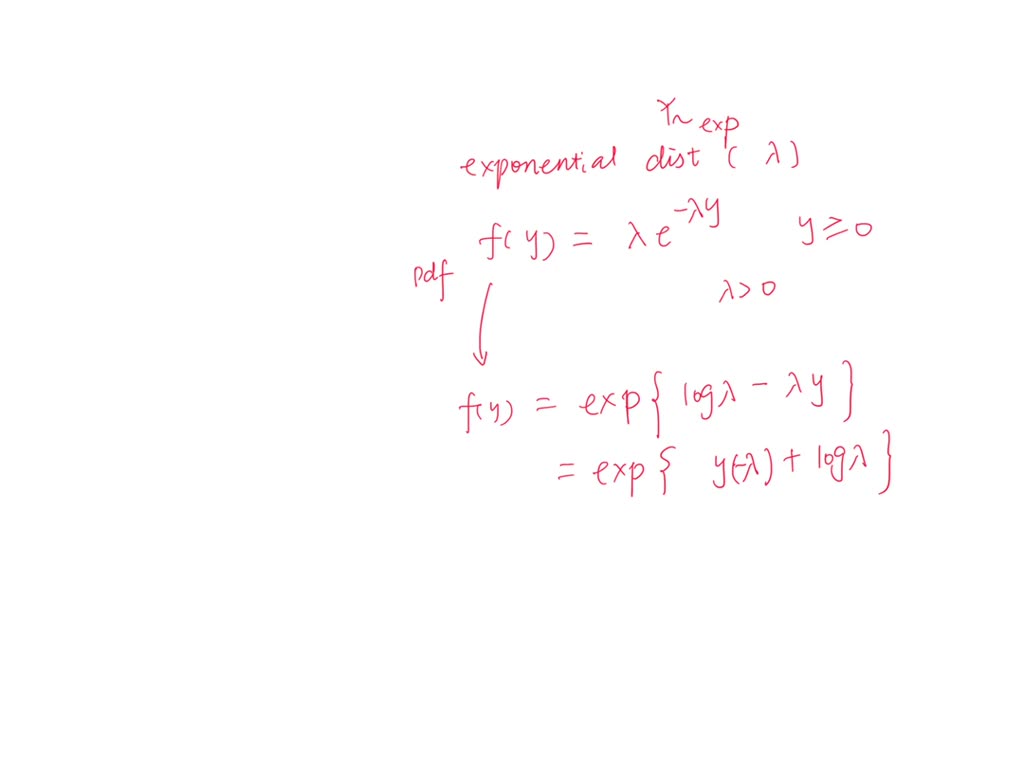 Y~ exp
exponential dist ( λ)
f(y) = λe^{-λy} y ≥ 0
pdf
λ > 0
f(y) = exp{ logλ - λy }
= exp{ y(-λ) + logλ }